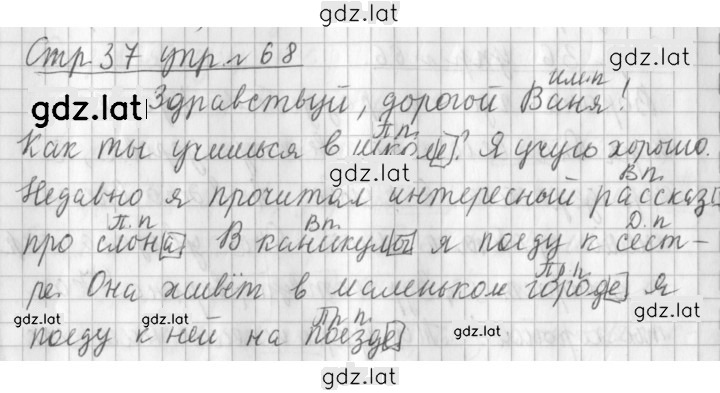 gdz.lat
Стр 37 упр. № 68
gdz.lat
им.п
gdz.lat Здравствуй, дорогой Ваня!
П.п.
Как ты учишься в школе? Я учусь хорошо.
gdz.lat
В п.
Недавно я прочитал интересный рассказ
П. п Вп. Д. п
про слона В каникулы я поеду к сест-
Пр п.
ре. Она живёт в маленьком городе я
gdz.lat gdz.lat
Пр. п. gdz.lat
поеду к ней на поезде
gdz.lat